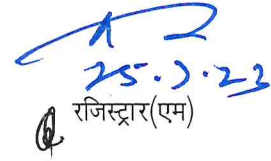 25.7.23
रजिस्ट्रार(एम)